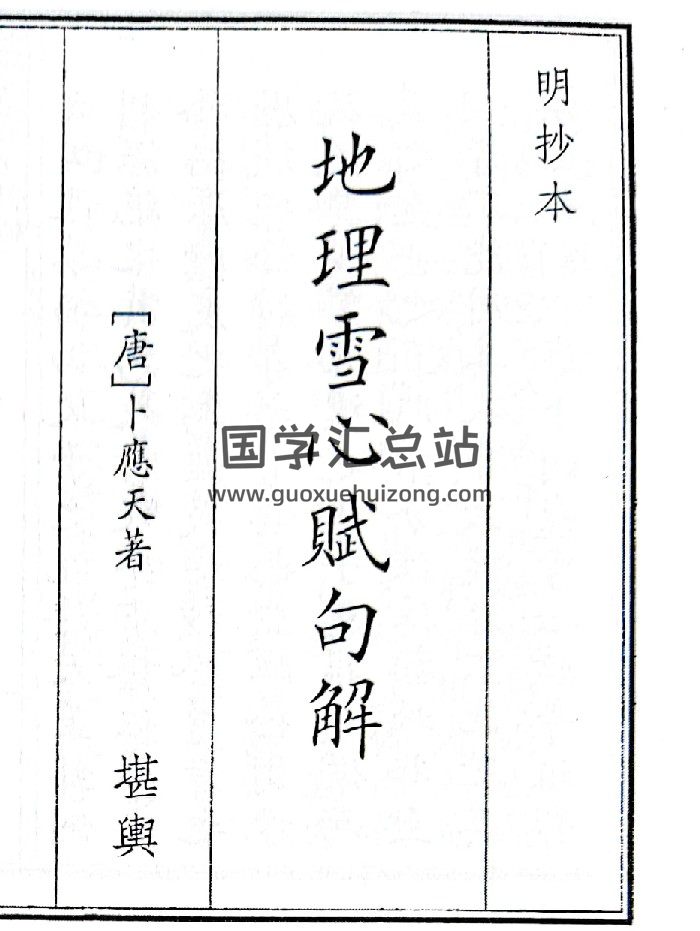 明抄本
地理雪心賦句解
[唐]卜應天著
堪輿
国学汇总站
www.guoxuehuizong.com